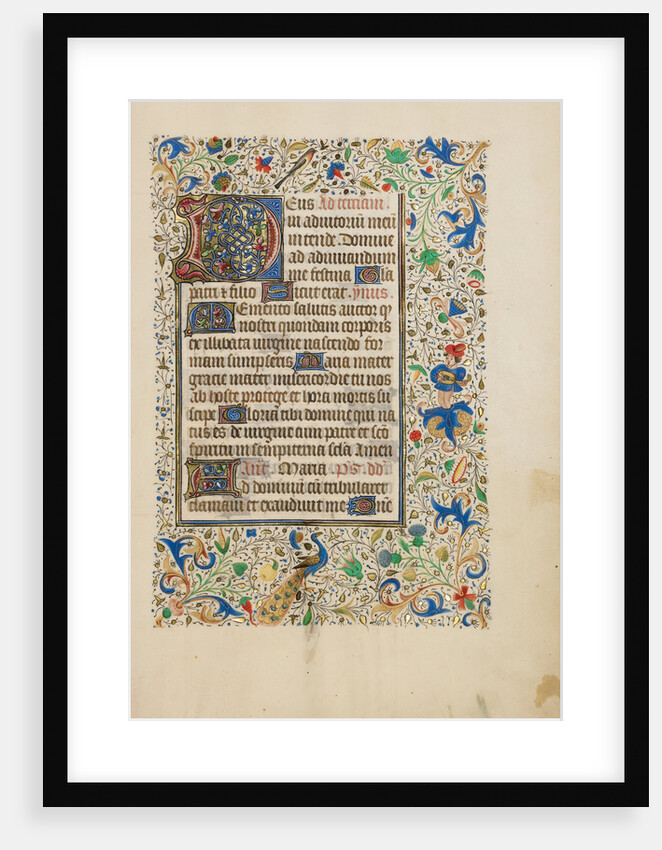 Deus Ad terciam.
in adiutoriū meū
intende. Domine
ad adiuuandum
me festina Gloria
patri ⁊ filio Sicut erat. ymus.
Memento salutis auctor qͥ
nostri quondam corporis
ex illibata uirgine nascendo for
mam sumpseris Maria mater
gracie mater misericordie tu nos
ab hoste protege et hora mortis su
scipe Gloria tibi domine qui na
tus es de uirgine cum patre et scō
spiritu in sempiterna secla Amen
Añt. Maria p̄s. dd
Ad dominū cū tribularer
clamaui et exaudiuit me Dn̄e